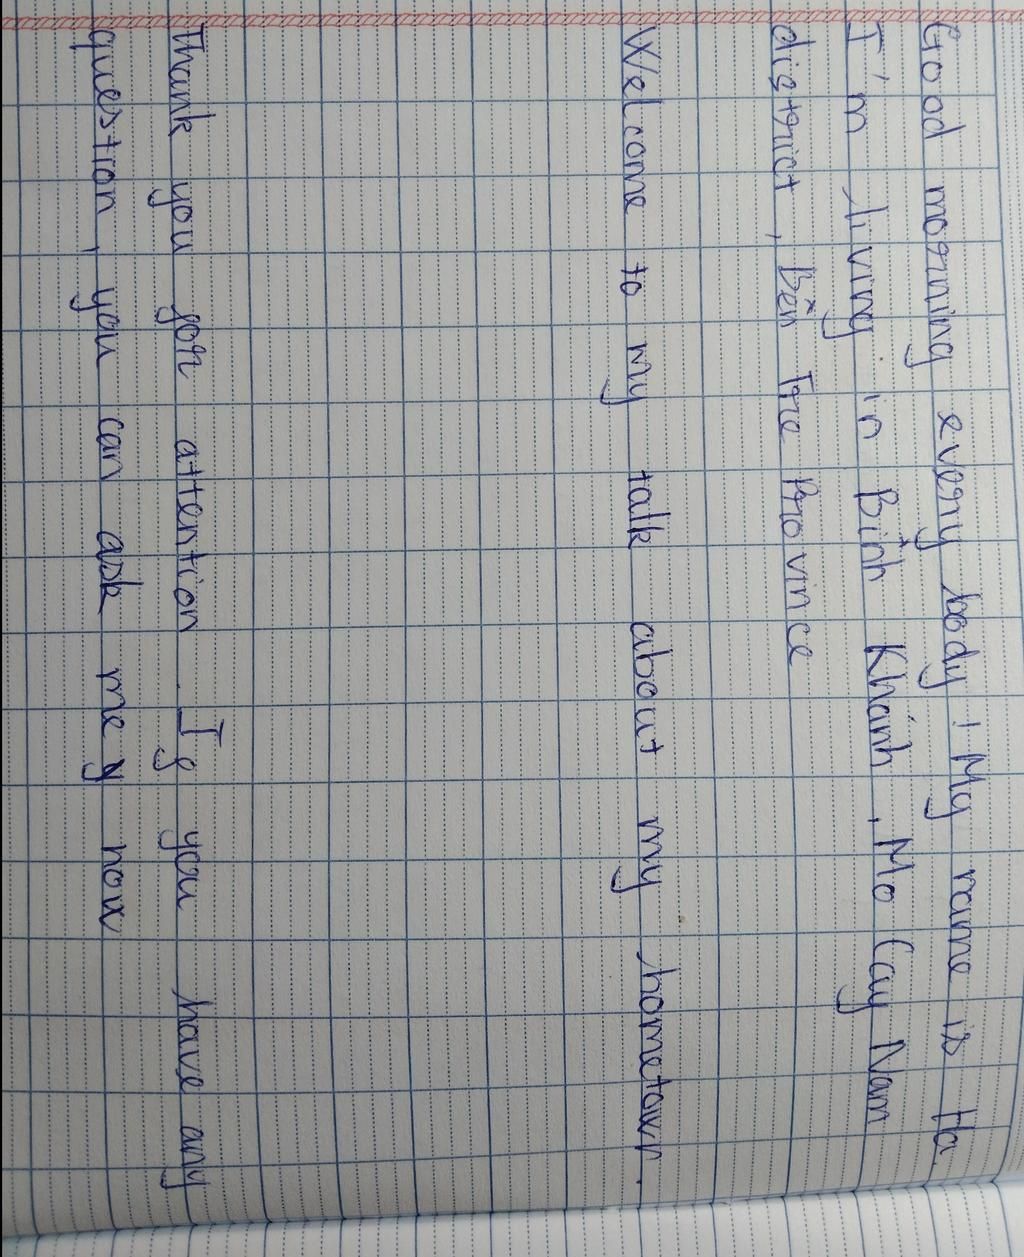 Good morning every body! My name is Ha.
I'm living in Bình Khánh, Mo Cay Nam
district, Bến Tre Province
Welcome to my talk about my hometown.
Thank you for attention. If you have any
question, you can ask me now